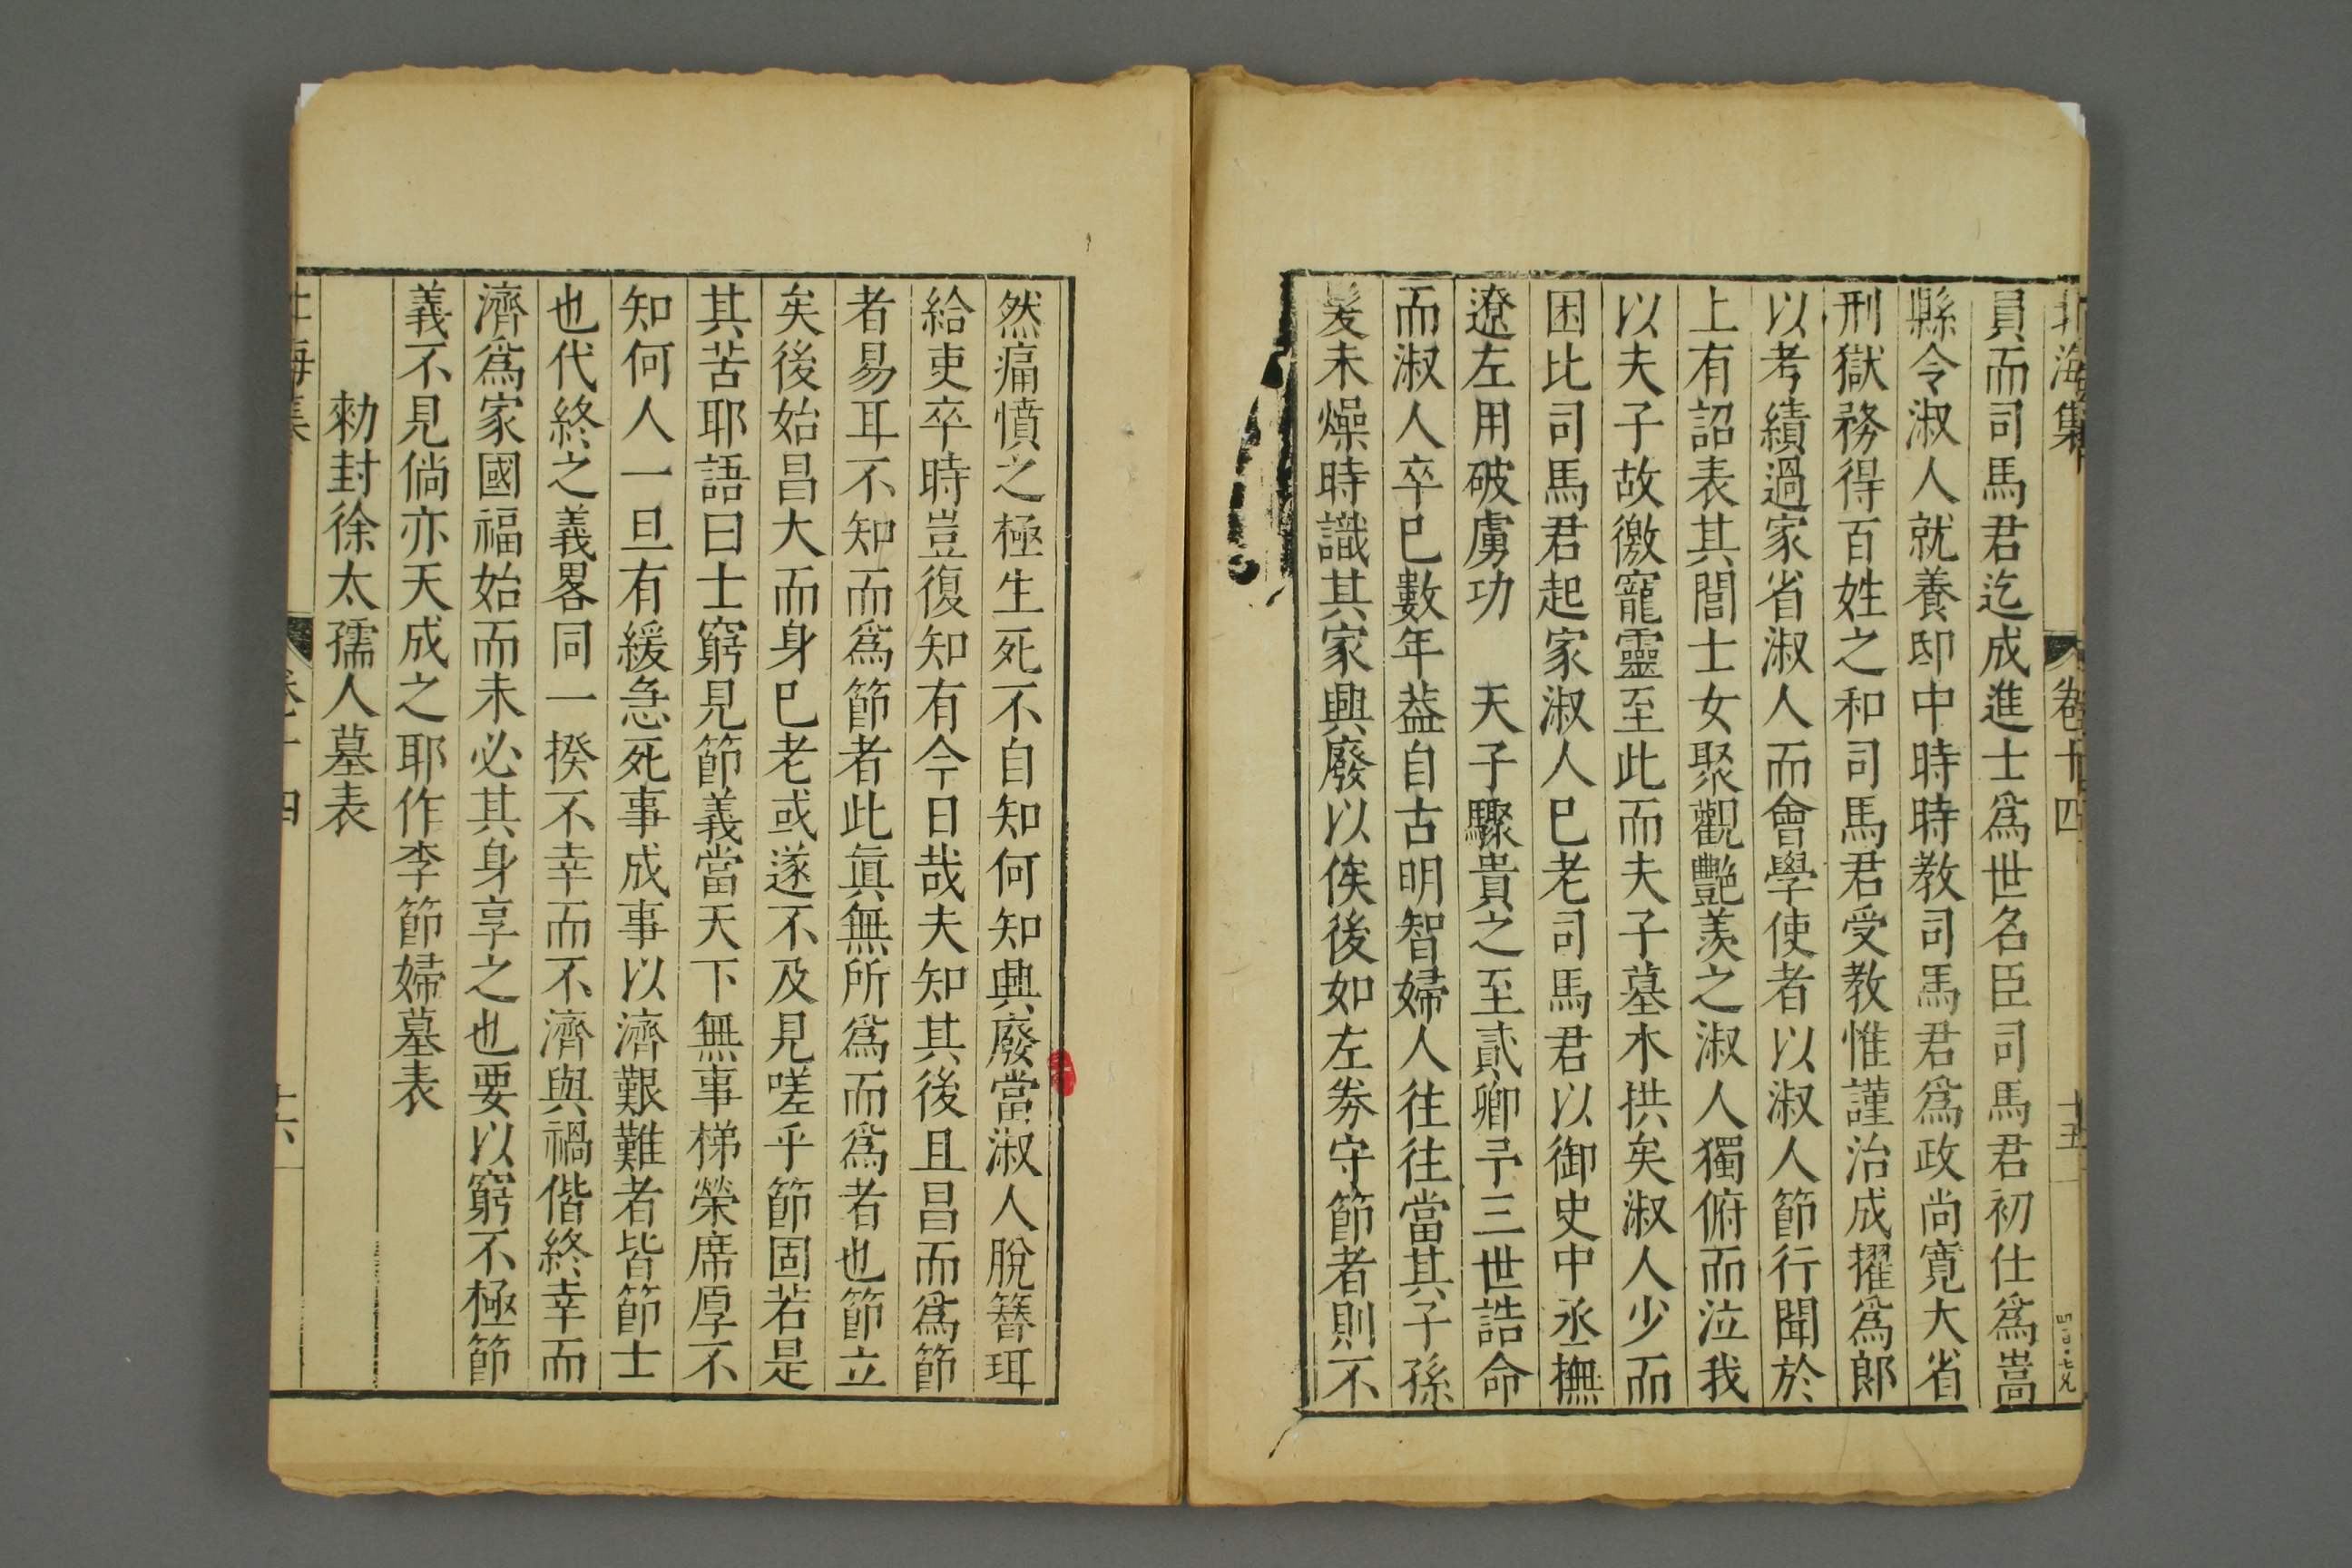 北海集 卷十四 十五
員而司馬君迄成進士爲世名臣司馬君初仕爲嵩
縣令淑人就養邸中時時教司馬君爲政尚寬大省
刑獄務得百姓之和司馬君受教惟謹治成擢爲郎
以考績過家省淑人而會學使者以淑人節行聞於
上有詔表其閭士女聚觀艷羨之淑人獨俯而泣我
以夫子故徼寵靈至此而夫子墓木拱矣淑人少而
困比司馬君起家淑人已老司馬君以御史中丞撫
遼左用破虜功 天子驟貴之至貳卿予三世誥命
而淑人卒已數年葢自古明智婦人往往當其子孫
髮未燥時識其家興廢以俟後如左劵守節者則不
然痛憤之極生死不自知何知興廢當淑人脫簪珥
給吏卒時豈復知有今日哉夫知其後且昌而爲節
者易耳不知而爲節者此眞無所爲而爲者也節立
矣後始昌大而身已老或遂不及見嗟乎節固若是
其苦耶語曰士窮見節義當天下無事梯榮席厚不
知何人一旦有緩急死事成事以濟艱難者皆節士
也代終之義畧同一揆不幸而不濟與禍偕終幸而
濟爲家國福始而未必其身享之也要以窮不極節
義不見倘亦天成之耶作李節婦墓表
勑封徐太孺人墓表
北海集 卷十四 十六